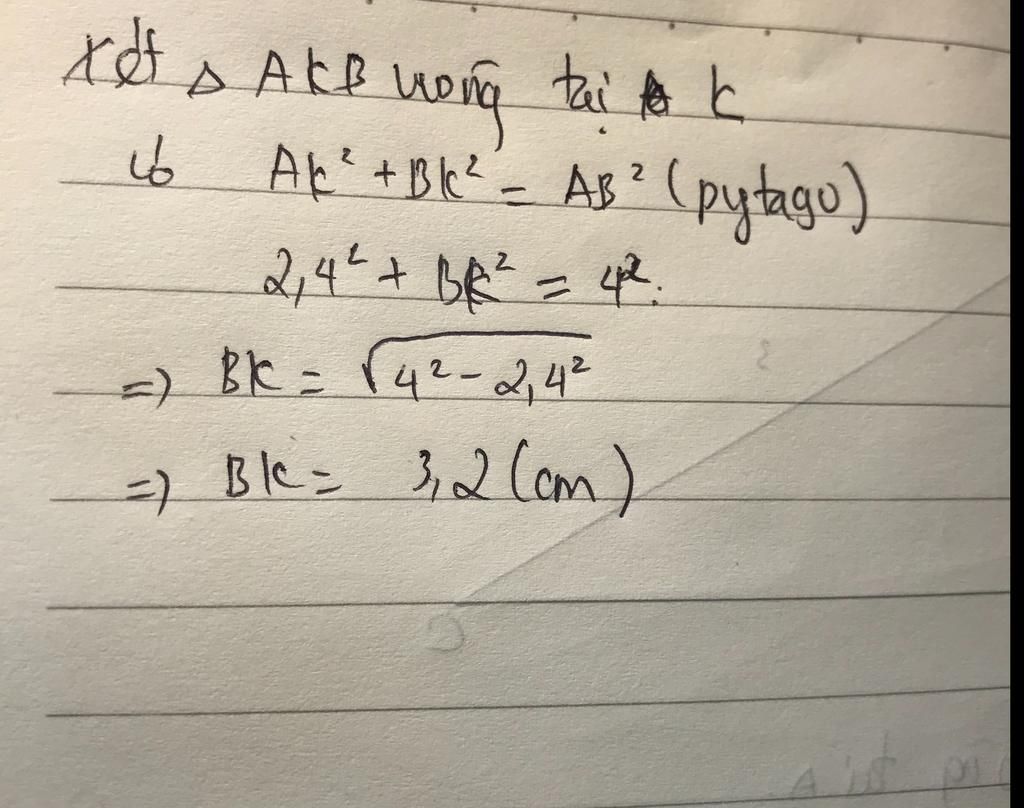 xét △ AKB vuông tại K
có AK² + BK² = AB² (pytago)
2,4² + BK² = 4².
=> BK = √4² - 2,4²
=> BK = 3,2 (cm)